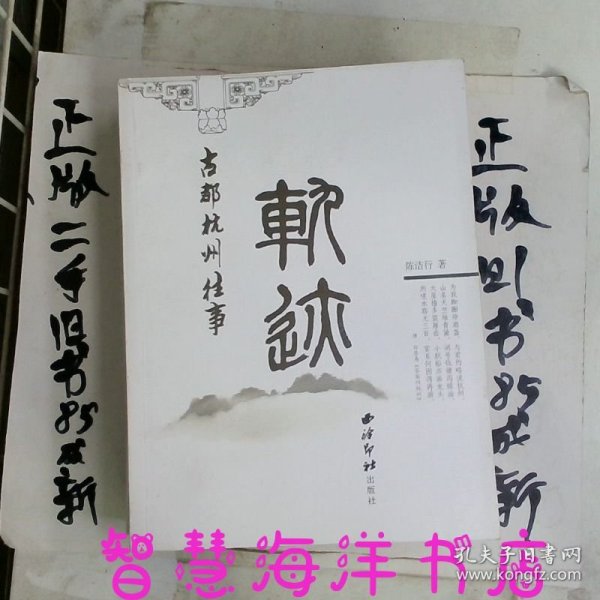 正版二手旧书85成新
古都杭州往事
軌迹
陈洁行 著
西泠印社出版社
正版旧书85成新
智慧海洋书店
孔夫子旧书网
www.kongfz.com